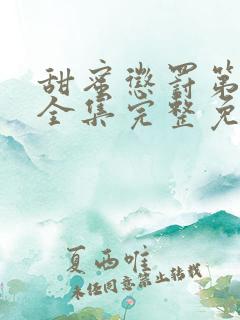 甜蜜惩罚第
全集完整免
夏西唯
未经同意禁止转载